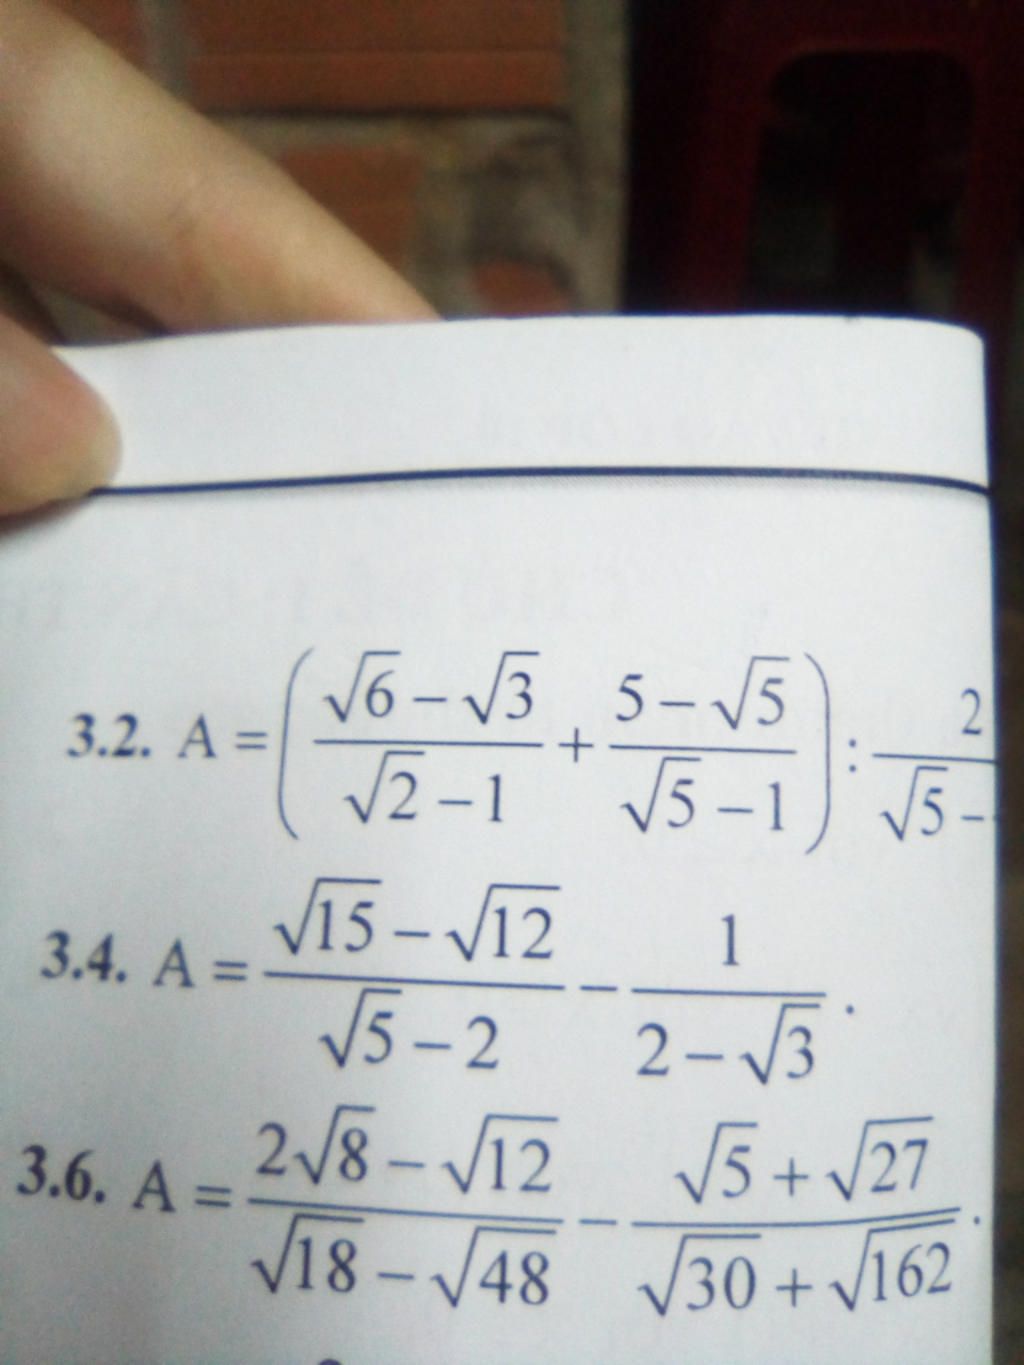 3.2. A = ( (√6 − √3)/(√2 − 1) + (5 − √5)/(√5 − 1) ) : 2/(√5 −
3.4. A = (√15 − √12)/(√5 − 2) − 1/(2 − √3) .
3.6. A = (2√8 − √12)/(√18 − √48) − (√5 + √27)/(√30 + √162) .